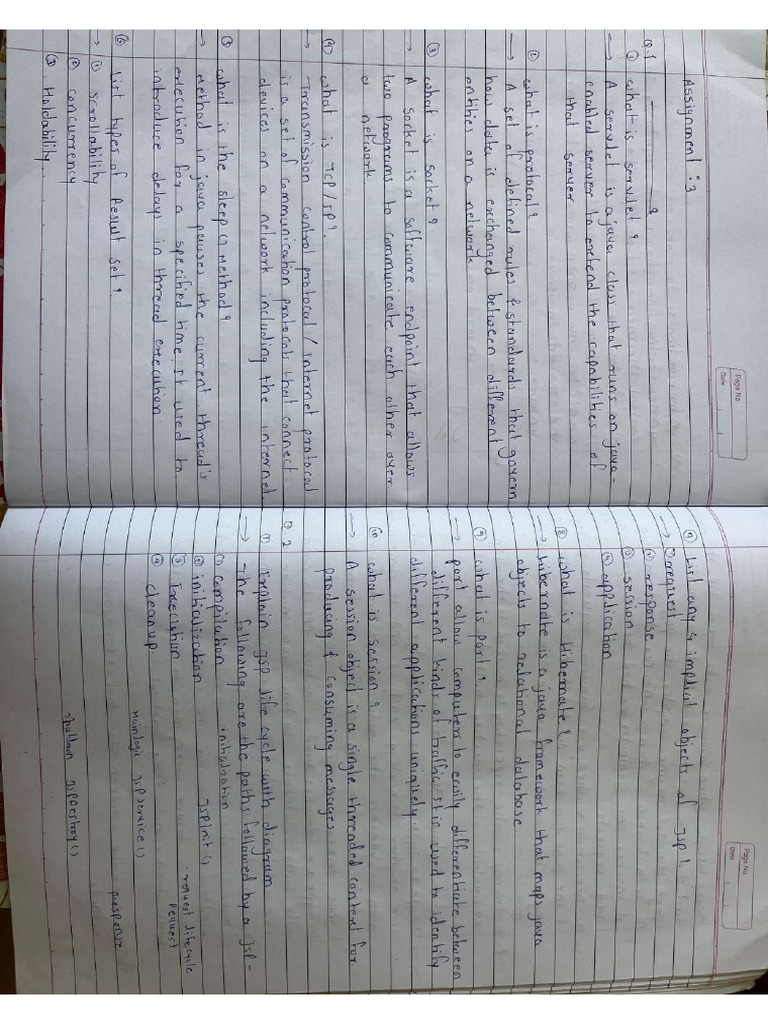 Page No.
Date
Assignment : 3
Q.1
① what is servlet ?
→ A servlet is a java class that runs on java-
enabled server to extend the capabilities of
that server
② what is protocol ?
→ A set of defined rules & standards that govern
how data is exchanged between different
entities on a network
③ what is socket ?
→ A socket is a software endpoint that allows
two programs to communicate each other over
a network
④ what is TCP/IP ?
→ Transmission control protocol / internet protocol
is a set of communication protocols that connect
devices on a network including the internet
⑤ what is the sleep () Method ?
→ Method in java pauses the current thread's
execution for a specified time. It used to
introduce delays in thread execution
⑥ List types of Result set ?
→ ① scrollability
② concurrency
③ Holdability
Page No.
Date
⑦ List any 4 implicit objects of JSP !
→ ① request
② response
③ session
④ application
⑧ what is Hibernate ?
→ hibernate is a java framework that maps java
objects to relational database
⑨ what is port ?
→ port allow computers to easily differentiate between
different kinds of traffic. It is used to identify
different applications uniquely.
⑩ what is session ?
→ A session object is a single threaded context for
producing & consuming messages
Q. 2
① Explain JSP life cycle with diagram
→ The following are the paths followed by a JSP-
① compilation
initialization
② initialization
JSPInit ()
③ Execution
request life cycle
Request
④ cleanup
mainlogic JSPservice ()
response
shutdown JSPDestroy ()